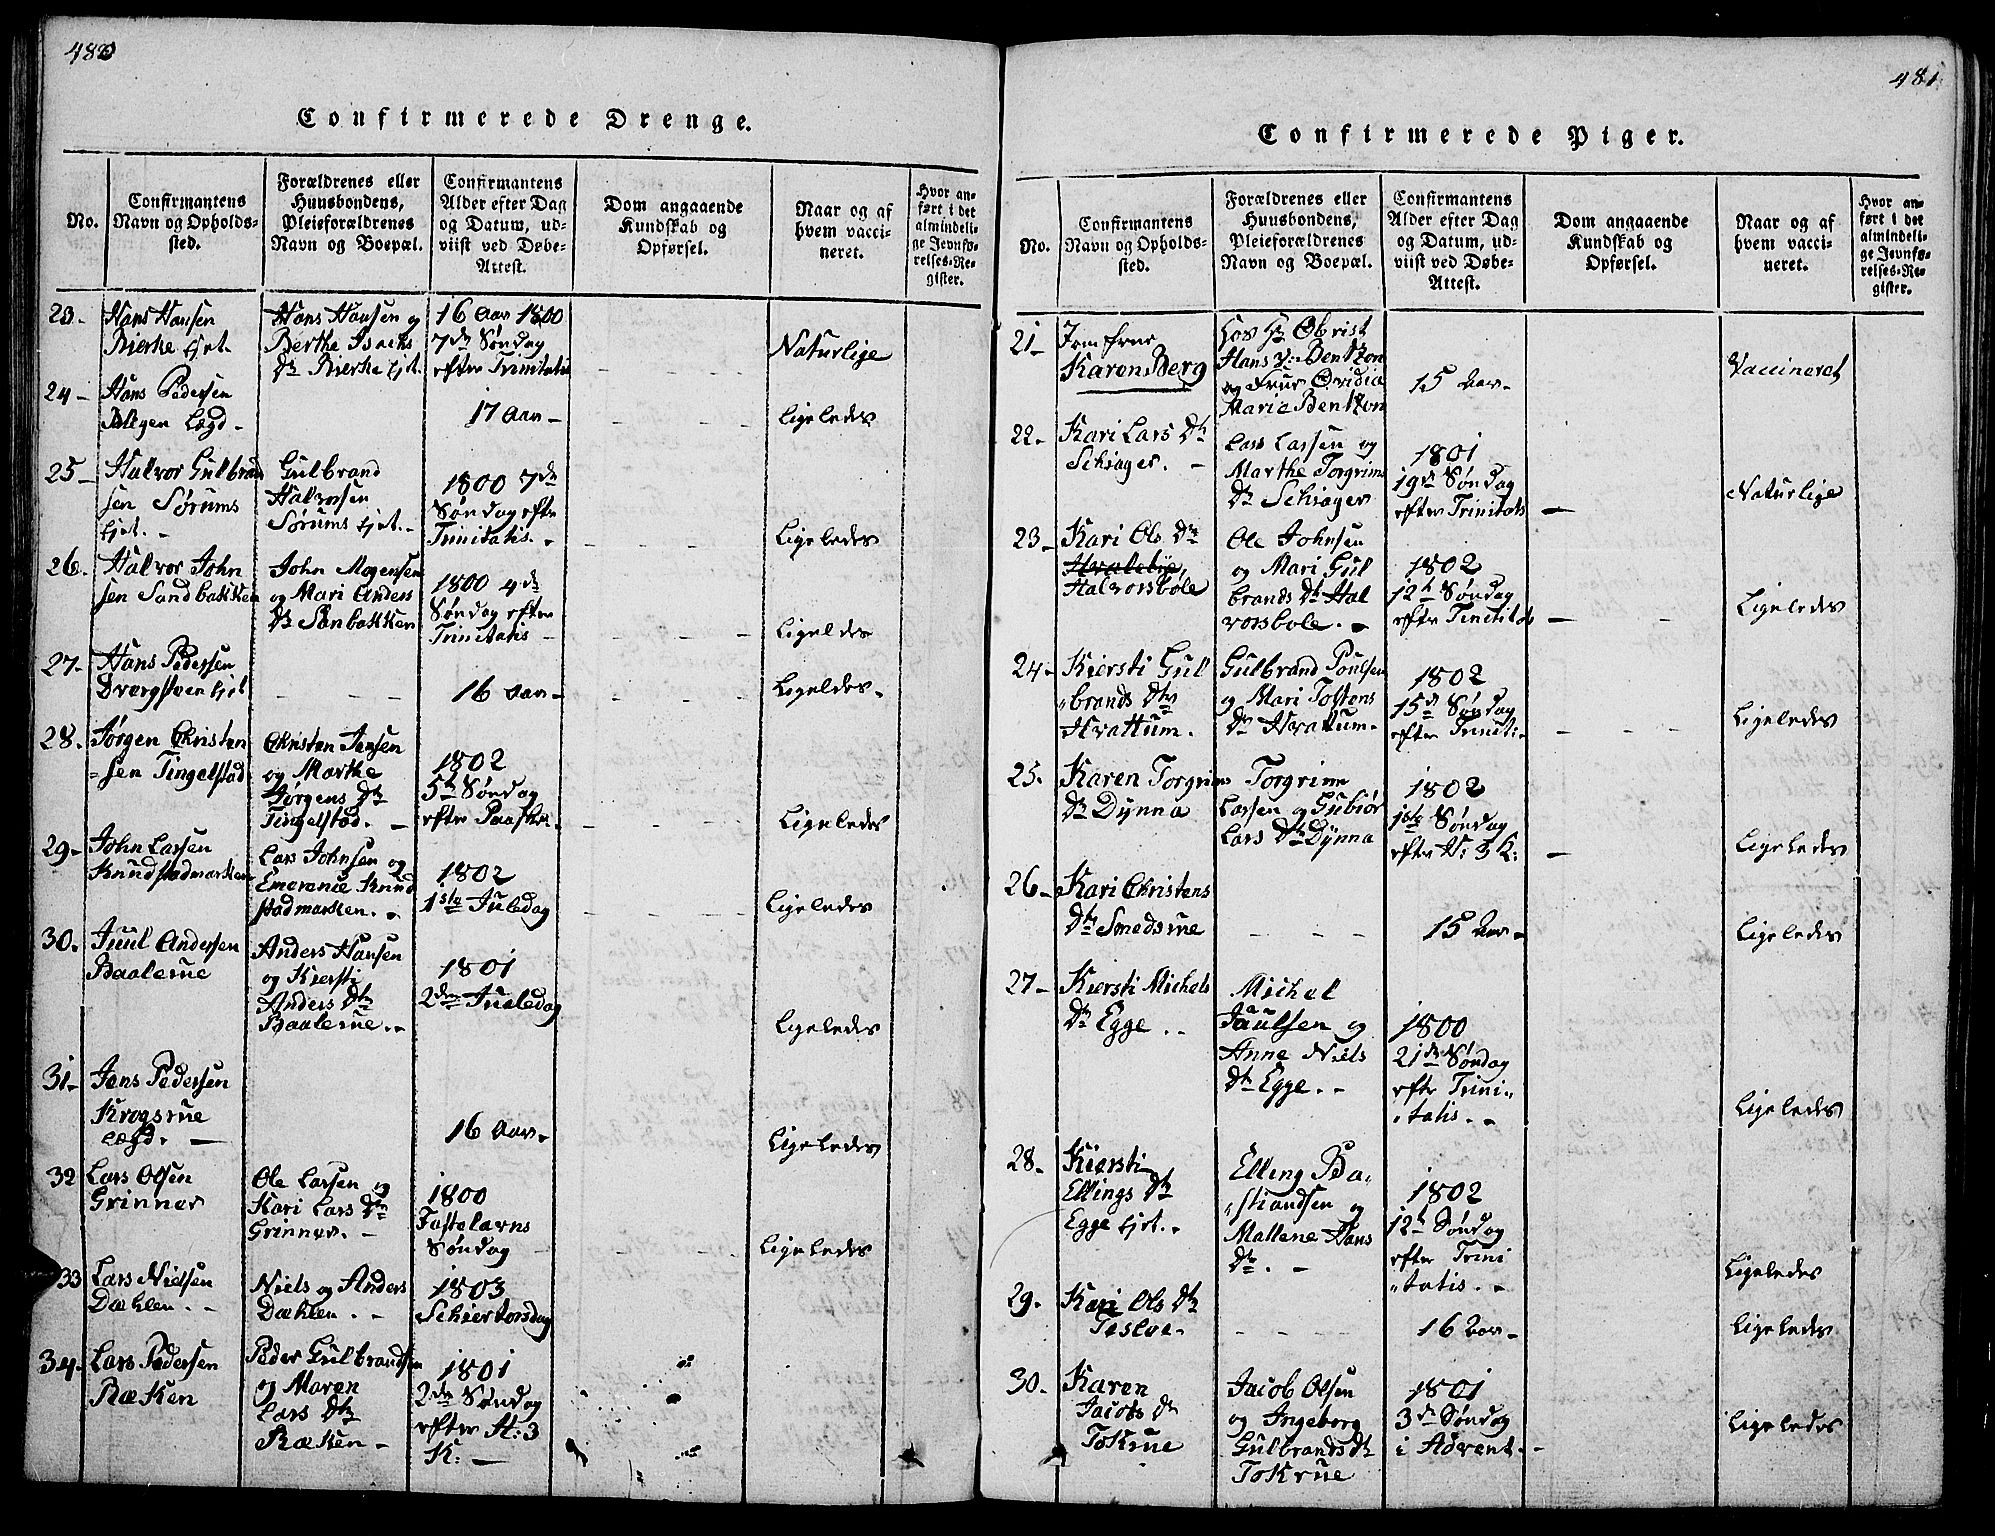 480
Confirmerede Drenge.
No.
Confirmantens
Navn og Opholds-
sted.
Forældrenes eller
Huusbondens,
Pleieforældrenes
Navn og Boepæl.
Confirmantens
Alder efter Dag
og Datum, ud-
viist ved Døbe-
Attest.
Dom angaaende
Kundskab og
Opførsel.
Naar og af
hvem vacci-
neret.
Hvor an-
ført i det
almindeli-
ge Jevnfø-
relses-Re-
gister.
23.
Hans Hansen
Bierke Ejet.
Hans Hansen og
Berthe Isachs
Dr Bierke Ejet.
16 Aar 1800
7de Søndag
efter Trinitatis
Naturlige
24
Hans Pedersen
Lægd
17 Aar
Ligeledes
25
Halvor Gulbrand
sen Sørums
Ejet.
Gulbrand
Halvorsen
Sørums Ejet.
1800 7de
Søndag efter
Trinitatis.
Ligeledes
26.
Halvor John
sen Sandbakken
John Mogensen
og Mari Anders
Dr Sanbakken
1800 4de
Søndag efter
Trinitatis
Ligeldes
27.
Hans Pedersen
Dvergsten Ejet
16 Aar
Ligeldes.
28.
Jørgen Christen
sen Tingelstad
Christen Jensen
og Marthe
Jørgens Dtr
Tingelstad.
1802
5te Søndag
efter Paaske.
Ligeledes
29
John Larsen
Knudstadmarken
Lars Johnsen og
Emerence Knud
stadmarken.
1802
1ste Juledag
Ligeledes
30.
Juul Andersen
Baalerue
Anders Hansen
og Kiersti
Anders Dtr
Baalerue.
1801
2den Juuledag
Ligeledes
31
Jens Pedersen
Krogsrue
Lægd.
16 Aar
Ligeledes
32
Lars Olsen
Grinner
Ole Larsen og
Kari Lars Dr
Grinner.
1800
Fastelavns
Søndag
Ligeledes
33
Lars Nielsen
Dæhlen.
Niels og Anders
Dæhlen.
1803
Schiertorsdag
34
Lars Pedersen
Ræken
Peder Gulbrandsen
og Maren
Lars Dtr
Ræken
1801
2den Søndag
efter H: 3
K:
481
Confirmerede Piger.
No.
Confirmantens
Navn og Opholds-
sted.
Forældrenes eller
Huusbondens,
Pleieforældrenes
Navn og Boepæl.
Confirmantens
Alder efter Dag
og Datum, ud-
viist ved Døbe-
Attest.
Dom angaaende
Kundskab og
Opførsel.
Naar og af
hvem vacci-
neret.
Hvor an-
ført i det
almindeli-
ge Jevnfø-
relses-Re-
gister.
21
Jomfrue
Karen Berg
Hos Hr Obrist
Hans v: Bentzon
og Frue Ovidia
Marie Bentzon
15 Aar
Vaccineret
22
Kari Lars Dtr
Schiager.
Lars Larsen og
Marthe Torgrims
Dr Schiager
1801
19de Søndag
efter Trinitatis
Naturlige
23
Kari Ols Dtr
Halvorsbøle
Ole Johnsen
og Mari Gul
brands Dtr Hal
vorsbole.
1802
12te Søndag
efter Tinitatis
Ligeledes
24
Kiersti Gul
brands Dtr
Hvattum.
Gulbrand Poulsen
og Mari Tostens
Dr Hvattum
1802
15de Søndag
efter Triniti
Ligeledes
25.
Karen Torgrims
Dtr Dynna
Torgrim
Larsen og Gubiør
Lars Dtr Dynna
1802
1ste Søndag
efter H: 3 K:
Ligeledes
26
Kari Christens
Dtr Smedsrue
15 Aar
Ligeledes
27
Kiersti Michels
Dr Egge.
Michel
Paulsen og
Anne Niels
Dtr Egge.
1800
21de Søndag
efter Trini
tatis.
Ligeledes
28
Kiersti
Ellings Dtr
Egge Ejet.
Elling Ba
stiandsen og
Mallene Hans
Dtr.
1802
12te Søndag
efter Trini
tatis.
Ligeledes
29.
Kari Ols Dtr
Tesløe
16 Aar
Ligeledes
30.
Karen
Jacobs Dr
Tokrue
Jacob Olsen
og Ingeborg
Gulbrands Dtr
Tokrue
1801
3de Søndag
i Advent.
Ligeledes